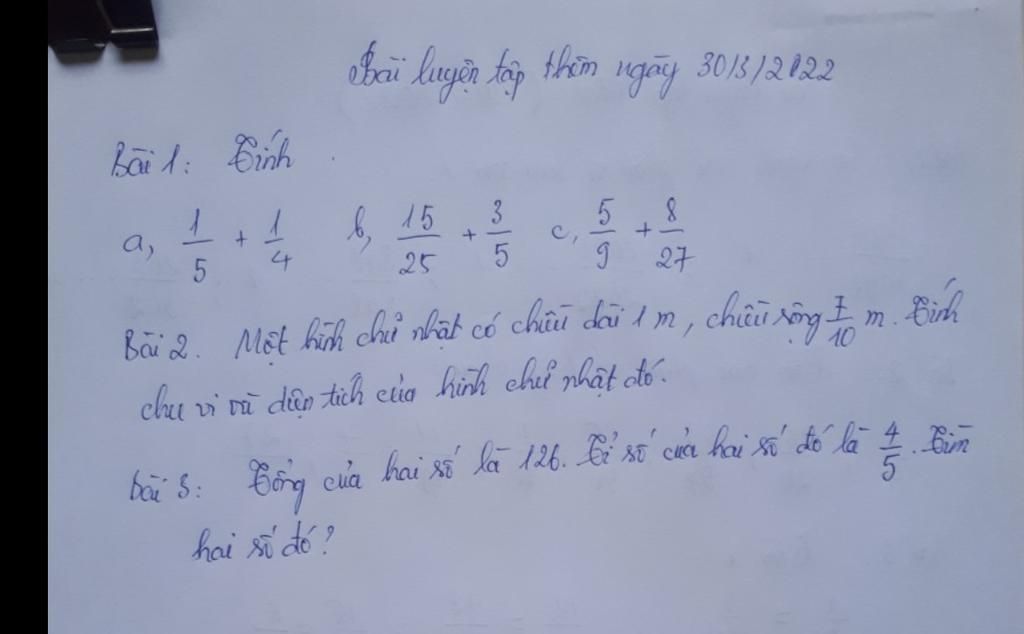 Bài luyện tập thêm ngày 30/3/2022
Bài 1: Tính
a, 1/5 + 1/4 b, 15/25 + 3/5 c, 5/9 + 8/27
Bài 2. Một hình chữ nhật có chiều dài 1 m, chiều rộng 7/10 m. Tính
chu vi và diện tích của hình chữ nhật đó.
bài 3: Tổng của hai số là 126. Tỉ số của hai số đó là 4/5. Tìm
hai số đó?